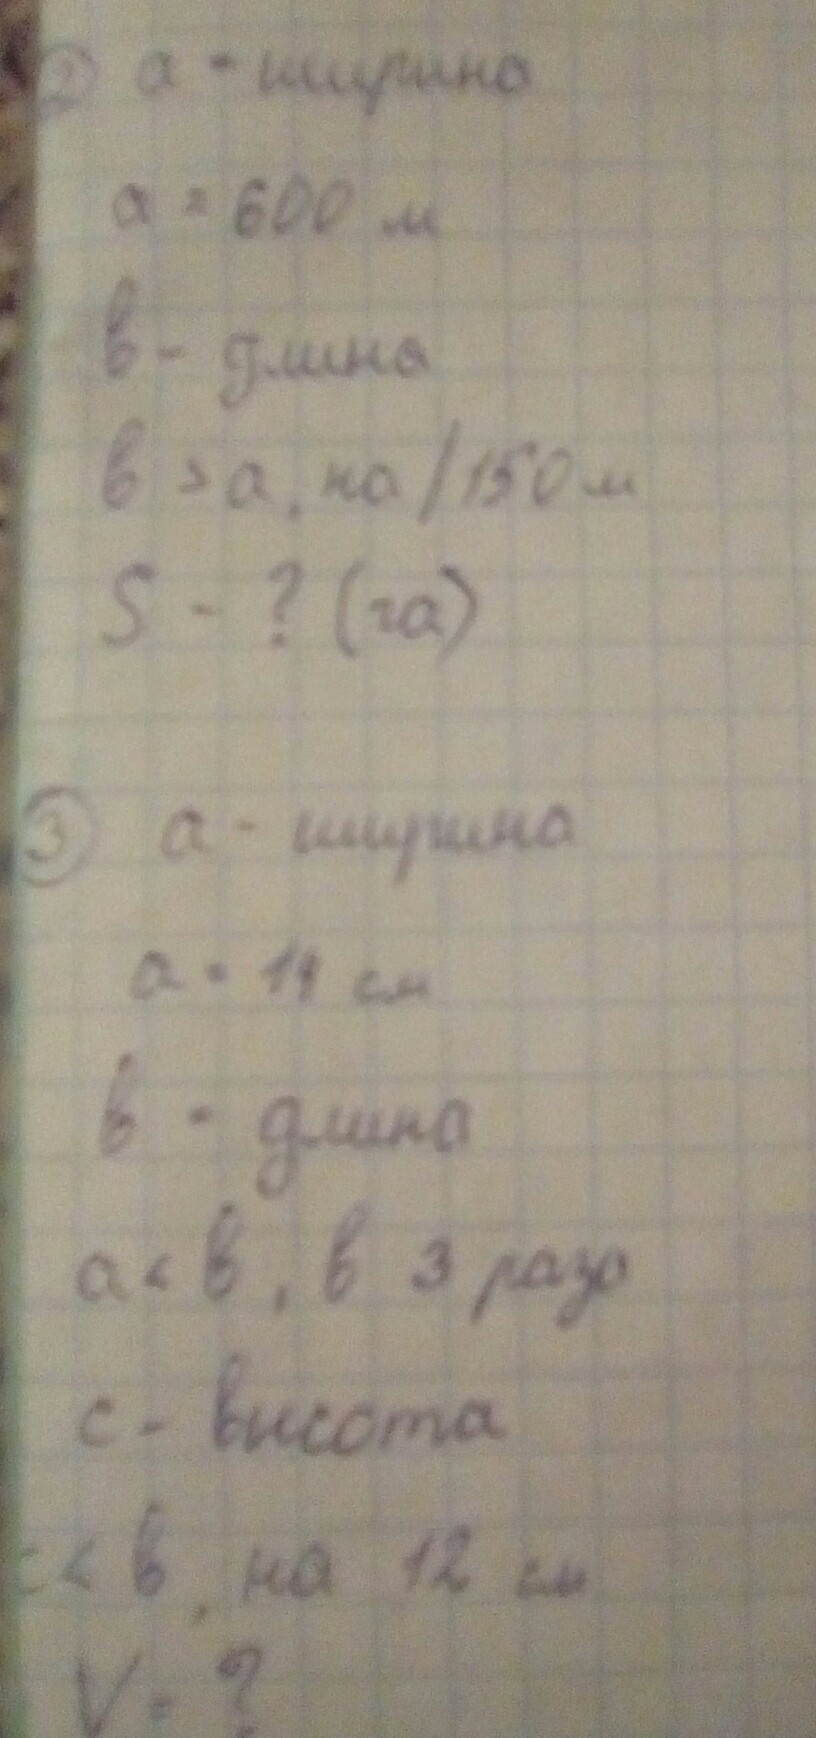 2 a - ширина
a = 600 м
b - длина
b > a, на 150 м
S - ? (га)
3 a - ширина
a = 14 см
b - длина
a < b, в 3 раза
c - висота
< b, на 12 см
V = ?